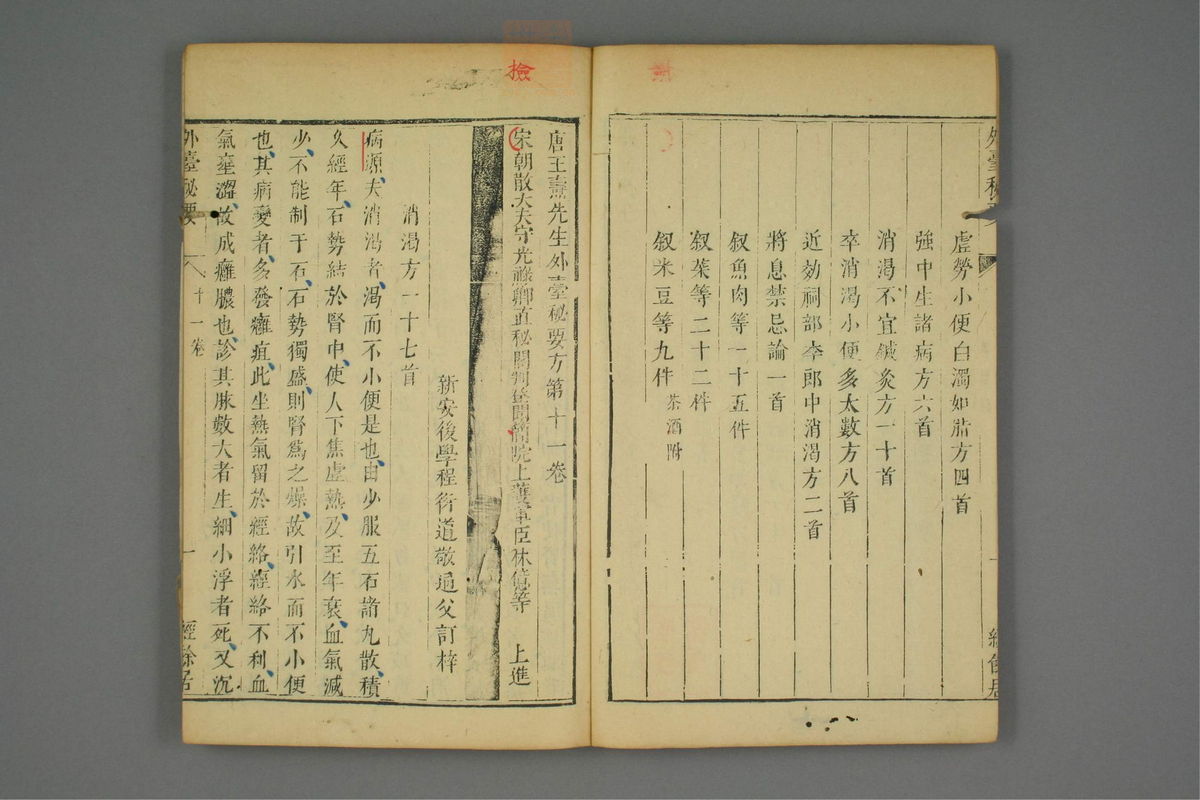 虛勞小便白濁如脂方四首
強中生諸病方六首
消渴不宜鍼灸方一十首
卒消渴小便多太數方八首
近効祠部李郎中消渴方二首
將息禁忌論一首
叙魚肉等一十五件
叙菜等二十二件
叙米豆等九件 茶酒附
檢
唐王燾先生外臺秘要方第十一卷
宋朝散大夫守光祿卿直秘閣判登聞簡院上護軍臣林億等 上進
新安後學程衍道敬通父訂梓
消渴方一十七首
病源夫消渴者渴而不小便是也由少服五石諸丸散積
久經年石勢結於腎中使人下焦虛熱及至年衰血氣減
少不能制于石石勢獨盛則腎爲之燥故引水而不小便
也其病變者多發癰疽此坐熱氣留於經絡經絡不利血
氣壅澀故成癰膿也診其脉數大者生細小浮者死又沉
外臺秘要 十一卷 一 經餘居